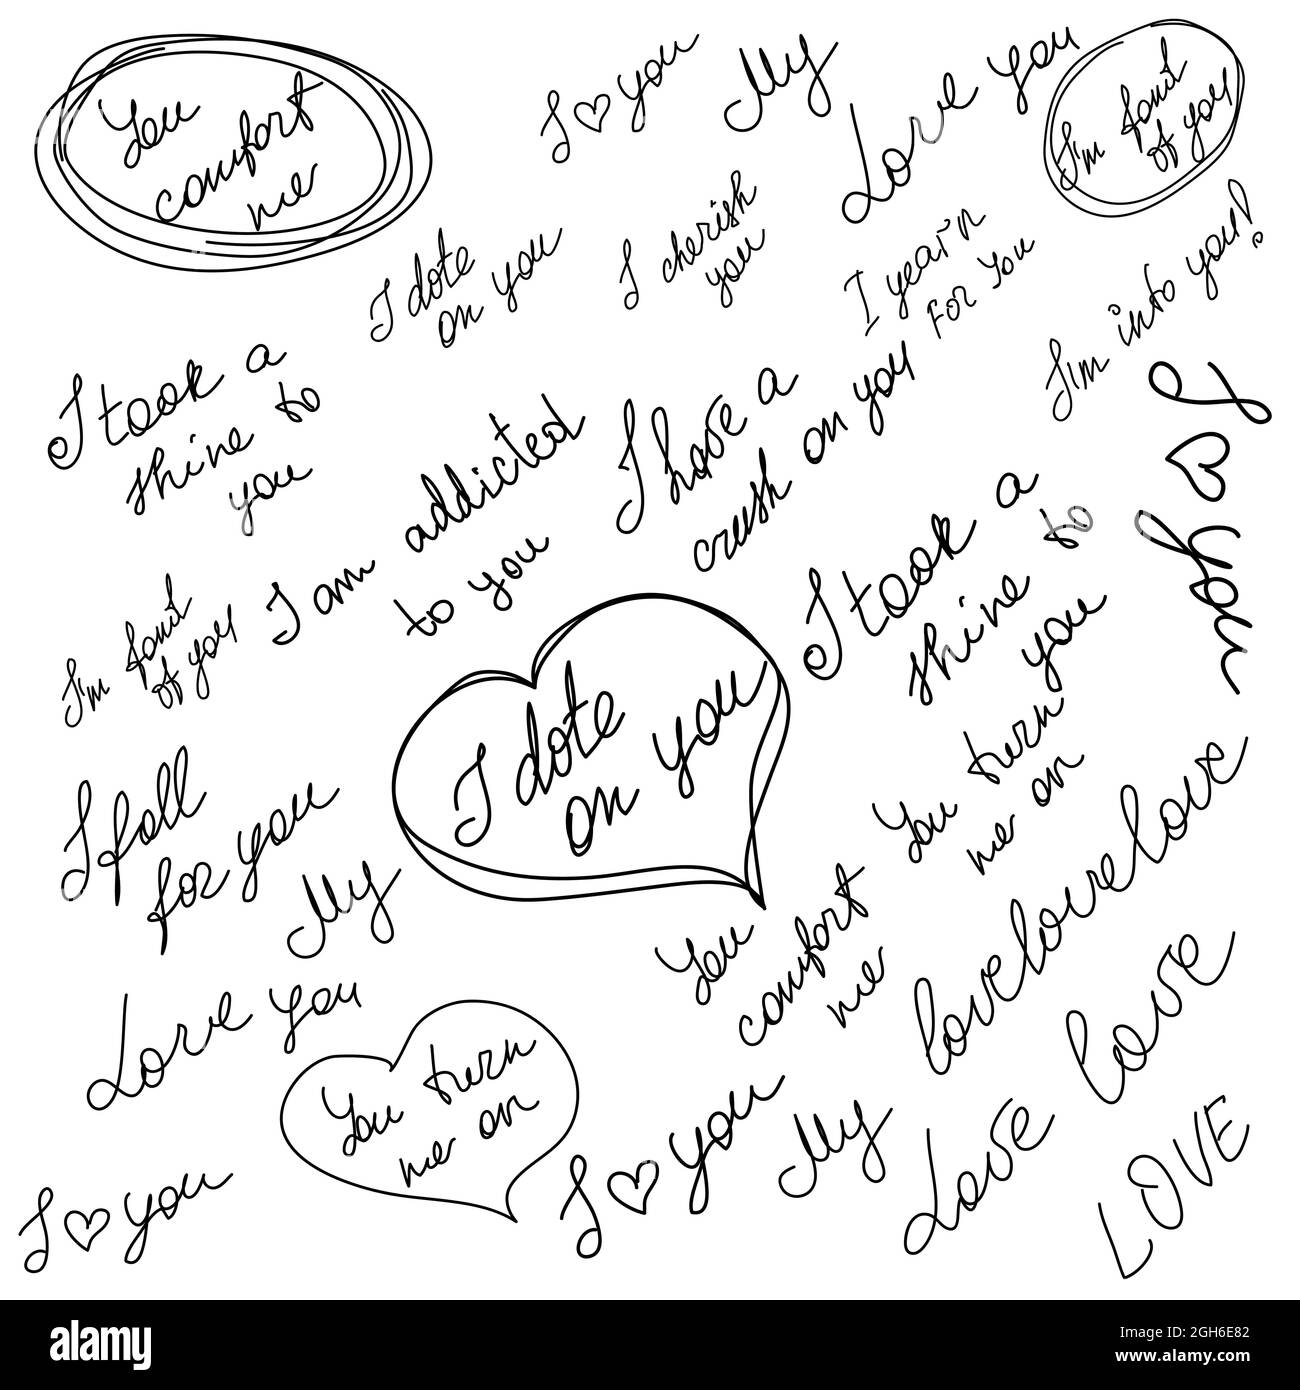 You
comfort
me
I ♡ you
My
Love you
I'm fond
of you
I dote
on you
I cherish
you
I yearn
For you
I'm into you!
I took a
shine to
you
I am addicted
to you
I have a
crush on you
I ♡ you
I took a
shine to
you
I'm fond
of you
I dote
on you
I fall
for you
My
You turn
me on
You
comfort
me
lovelovelove
Love you
You turn
me on
love
I ♡ you
I ♡ you
My
Love
LOVE
alamy
Image ID: 2GH6E82
www.alamy.com